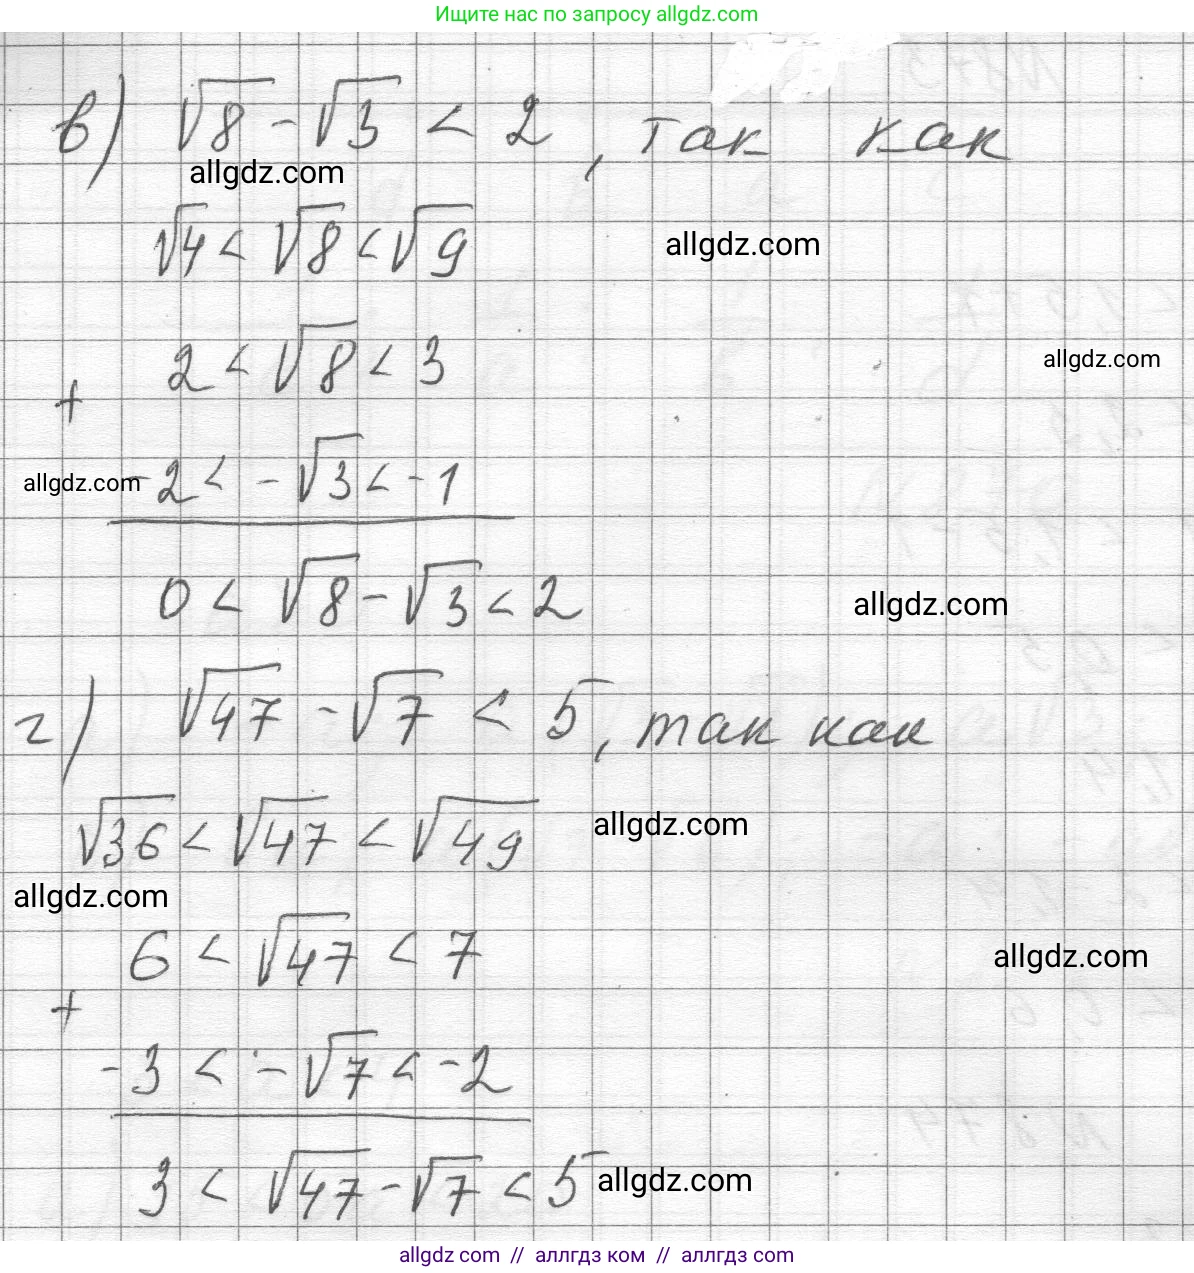 Ищите нас по запросу allgdz.com
в) √8 - √3 < 2, так как
allgdz.com
√4 < √8 < √9
allgdz.com
2 < √8 < 3
allgdz.com
+
allgdz.com
-2 < -√3 < -1
0 < √8 - √3 < 2
allgdz.com
г) √47 - √7 < 5, так как
√36 < √47 < √49
allgdz.com
allgdz.com
6 < √47 < 7
allgdz.com
+
-3 < -√7 < -2
3 < √47 - √7 < 5
allgdz.com
allgdz.com // аллгдз ком // аллгдз com